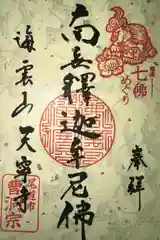 七佛
めぐり
奉拝
南無釋迦牟尼佛
海雲山 天寧寺
尾道市
曹洞宗